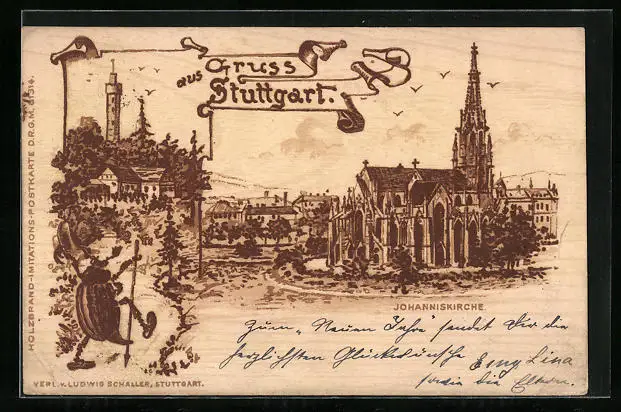 Gruss
aus
Stuttgart.
HOLZBRAND-IMITATIONS-POSTKARTE D.R.G.M. 81314.
JOHANNISKIRCHE.
Zum „Neuen Jahre“ sendet Dir die
herzlichsten Glückwünsche Lina
sowie die Eltern.
VERL. v. LUDWIG SCHALLER, STUTTGART.